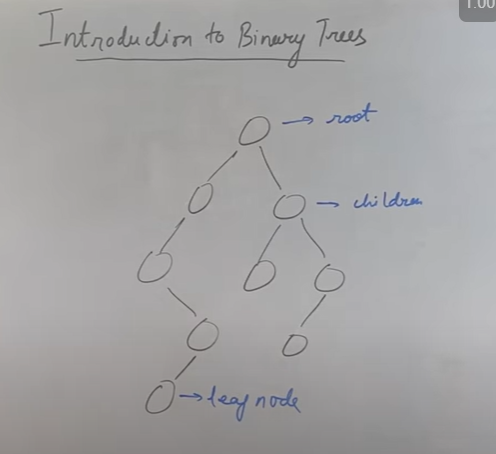 1.00
Introduction to Binary Trees
→ root
→ children
→ leaf node